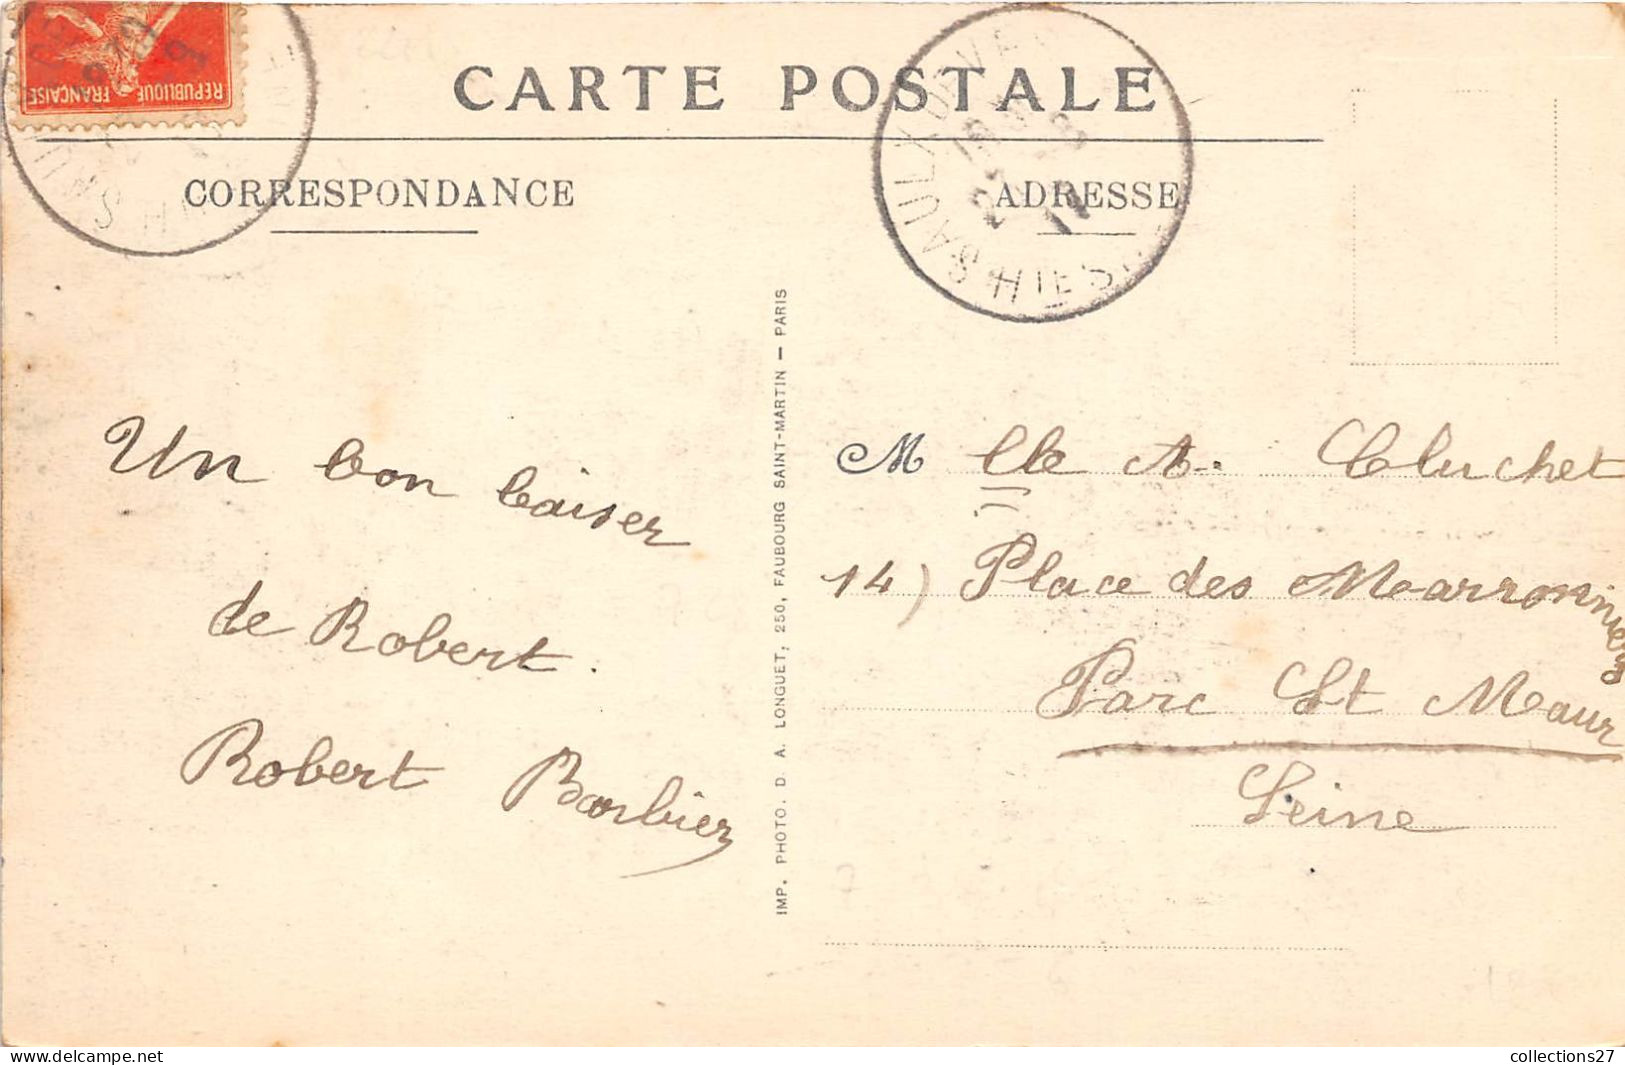 CARTE POSTALE
CORRESPONDANCE
ADRESSE
REPUBLIQUE FRANÇAISE
SAULX
Un bon baiser
de Robert.
Robert Barbier
IMP. PHOTO. D. A. LONGUET, 250, FAUBOURG SAINT-MARTIN — PARIS
M lle A. Cluchet
14) Place des Marronniers
Parc St Maur
Seine
collections27